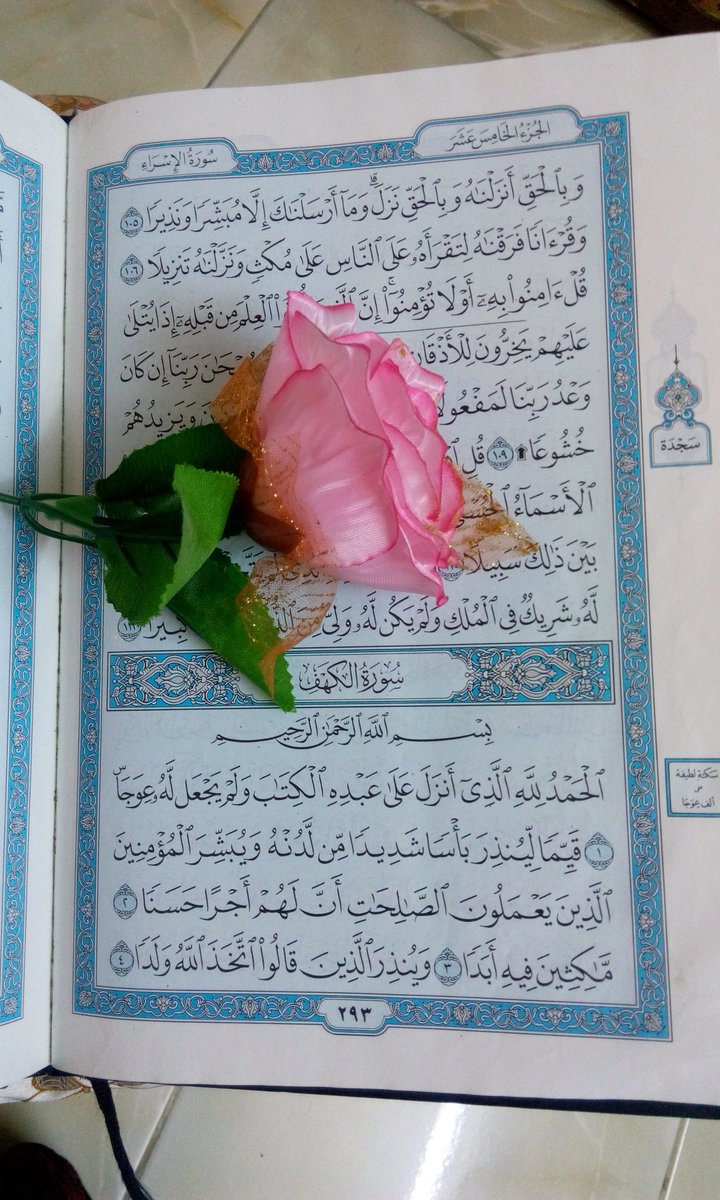 الجُزْءُ الخَامِسَ عَشَرَ
سُورَةُ الإِسْرَاءِ
وَبِٱلْحَقِّ أَنزَلْنَٰهُ وَبِٱلْحَقِّ نَزَلَ ۗ وَمَآ أَرْسَلْنَٰكَ إِلَّا مُبَشِّرًا وَنَذِيرًا ١٠٥
وَقُرْءَانًا فَرَقْنَٰهُ لِتَقْرَأَهُۥ عَلَى ٱلنَّاسِ عَلَىٰ مُكْثٍ وَنَزَّلْنَٰهُ تَنزِيلًا ١٠٦
قُلْ ءَامِنُوا۟ بِهِۦٓ أَوْ لَا تُؤْمِنُوٓا۟ ۚ إِنَّ ٱلْعِلْمَ مِن قَبْلِهِۦٓ إِذَا يُتْلَىٰ
عَلَيْهِمْ يَخِرُّونَ لِلْأَذْقَانِ رَبِّنَآ إِن كَانَ
وَعْدُ رَبِّنَا لَمَفْعُولًا وَيَزِيدُهُمْ
خُشُوعًا ۩ ١٠٩ قُلِ
ٱلْأَسْمَآءُ ٱلْحُسْنَىٰ
بَيْنَ ذَٰلِكَ سَبِيلًا
لَّهُۥ شَرِيكٌ فِى ٱلْمُلْكِ وَلَمْ يَكُن لَّهُۥ وَلِىٌّ
سَجْدَة
سُورَةُ الكَهْفِ
بِسْمِ ٱللَّهِ ٱلرَّحْمَٰنِ ٱلرَّحِيمِ
ٱلْحَمْدُ لِلَّهِ ٱلَّذِىٓ أَنزَلَ عَلَىٰ عَبْدِهِ ٱلْكِتَٰبَ وَلَمْ يَجْعَل لَّهُۥ عِوَجَاۜ
١ قَيِّمًا لِّيُنذِرَ بَأْسًا شَدِيدًا مِّن لَّدُنْهُ وَيُبَشِّرَ ٱلْمُؤْمِنِينَ
ٱلَّذِينَ يَعْمَلُونَ ٱلصَّٰلِحَٰتِ أَنَّ لَهُمْ أَجْرًا حَسَنًا ٢
مَّٰكِثِينَ فِيهِ أَبَدًا ٣ وَيُنذِرَ ٱلَّذِينَ قَالُوا۟ ٱتَّخَذَ ٱللَّهُ وَلَدًا ٤
سكتة لطيفة
على
ألف عِوَجَا
٢٩٣